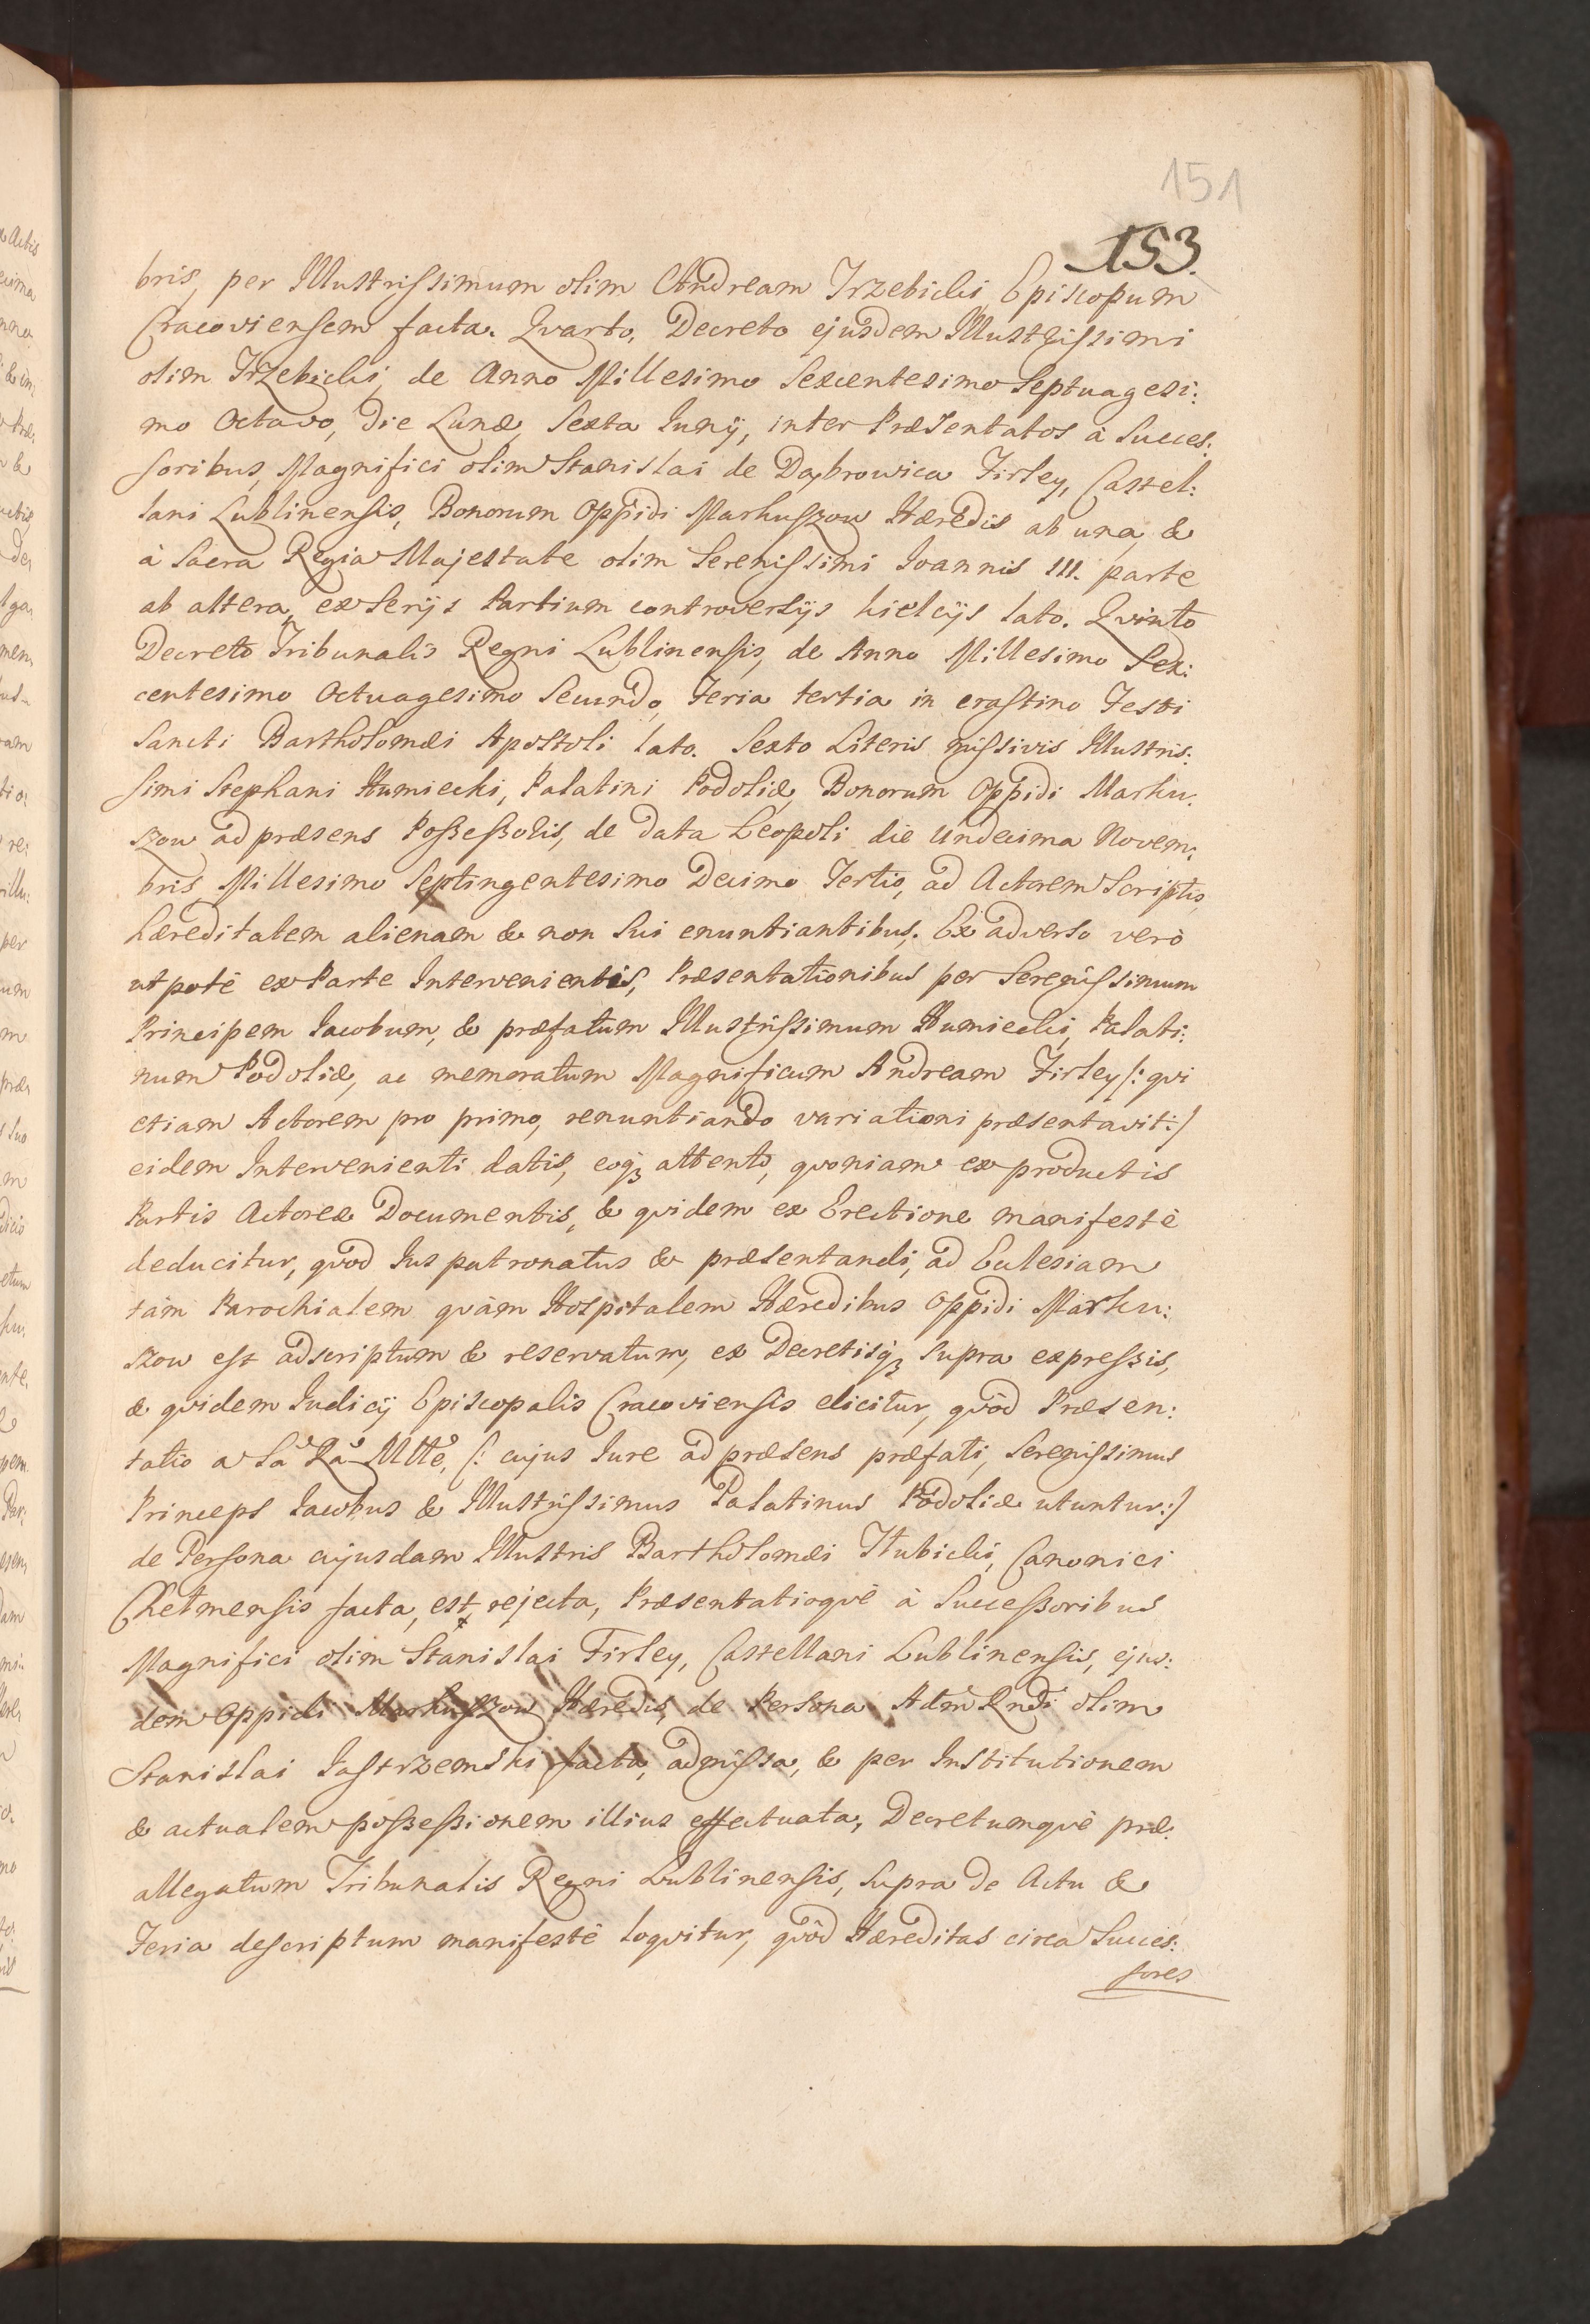 151
153.
bris, per Illustrissimum olim Andream Trzebicki Episcopum
Cracoviensem facta. Qvarto, Decreto ejusdem Illustrissimi
olim Trzebicki, de Anno Millesimo Sexcentesimo Septuagesi:
mo Octavo, Die Lunæ, Sexta Junÿ, inter Præsentatos à Succes:
soribus, Magnifici olim Stanislai de Dąbrowica Firley, Castel:
lani Lublinensis, Bonorum Oppidi Markuszow Hæredis ab una, &
à Sacra Regia Majestate olim Serenissimi Joannis III. parte
ab altera, ex serÿs Partium controversÿs kielcÿs lato. Qvinto
Decreto Tribunalis Regni Lublinensis, de Anno Millesimo Sex:
centesimo Octuagesimo Secundo, Feria tertia in crastino Festi
Sancti Bartholomæi Apostoli lato. Sexto Literis missivis Illustris:
simi Stephani Humiecki, Palatini Podoliæ, Bonorum Oppidi Marku:
szow ad præsens Possessoris, de data Leopoli die Undecima Novem:
bris Millesimo Septingentesimo Decimo Tertio, ad Actorem Scriptis,
hæreditatem alienam & non Sui enuntiantibus. Ex adverso verò
utpotè ex Parte Intervenientis, Præsentationibus per Serenissimum
Principem Jacobum, & præfatum Illustrissimum Humiecki, Palati:
num Podoliæ, ac memoratum Magnificum Andream Firley /: qvi
etiam Actorem pro primo, renuntiando variationi præsentavit :/
eidem Intervenienti datis, eoqz attento, qvoniam ex productis
Partis Actoreæ Documentis, & qvidem ex Erectione manifestè
deducitur, qvòd Jus patronatus & præsentandi, ad Eclesiam
tàm Parochialem qvàm Hospitalem Hæredibus Oppidi Marku:
szow est adscriptum & reservatum, ex Decretisqz supra expressis,
& qvidem Judicÿ Episcopalis Cracoviensis elicitur, qvòd Præsen:
tatio a Sa Ra Mtte, /: cujus Jure ad præsens præfati, Serenissimus
Princeps Jacobus & Illustrissimus Palatinus Podoliæ utuntur :/
de Persona cujusdam Illustris Bartholomæi Hubicki, Canonici
Chelmensis facta, est rejecta, Præsentatioqvè à Successoribus
Magnifici olim Stanislai Firley, Castellani Lublinensis, ejus:
dem Oppidi Markuszow Hæredis, de Persona Adm Rndi olim
Stanislai Jastrzemski facta, admissa, & per Institutionem
& actualem possessionem illius effectuata, Decretumqvè præ:
allegatum Tribunalis Regni Lublinensis, supra de Actu &
Feria descriptum manifestè loqvitur, qvòd Hæreditas circa Succes:
sores